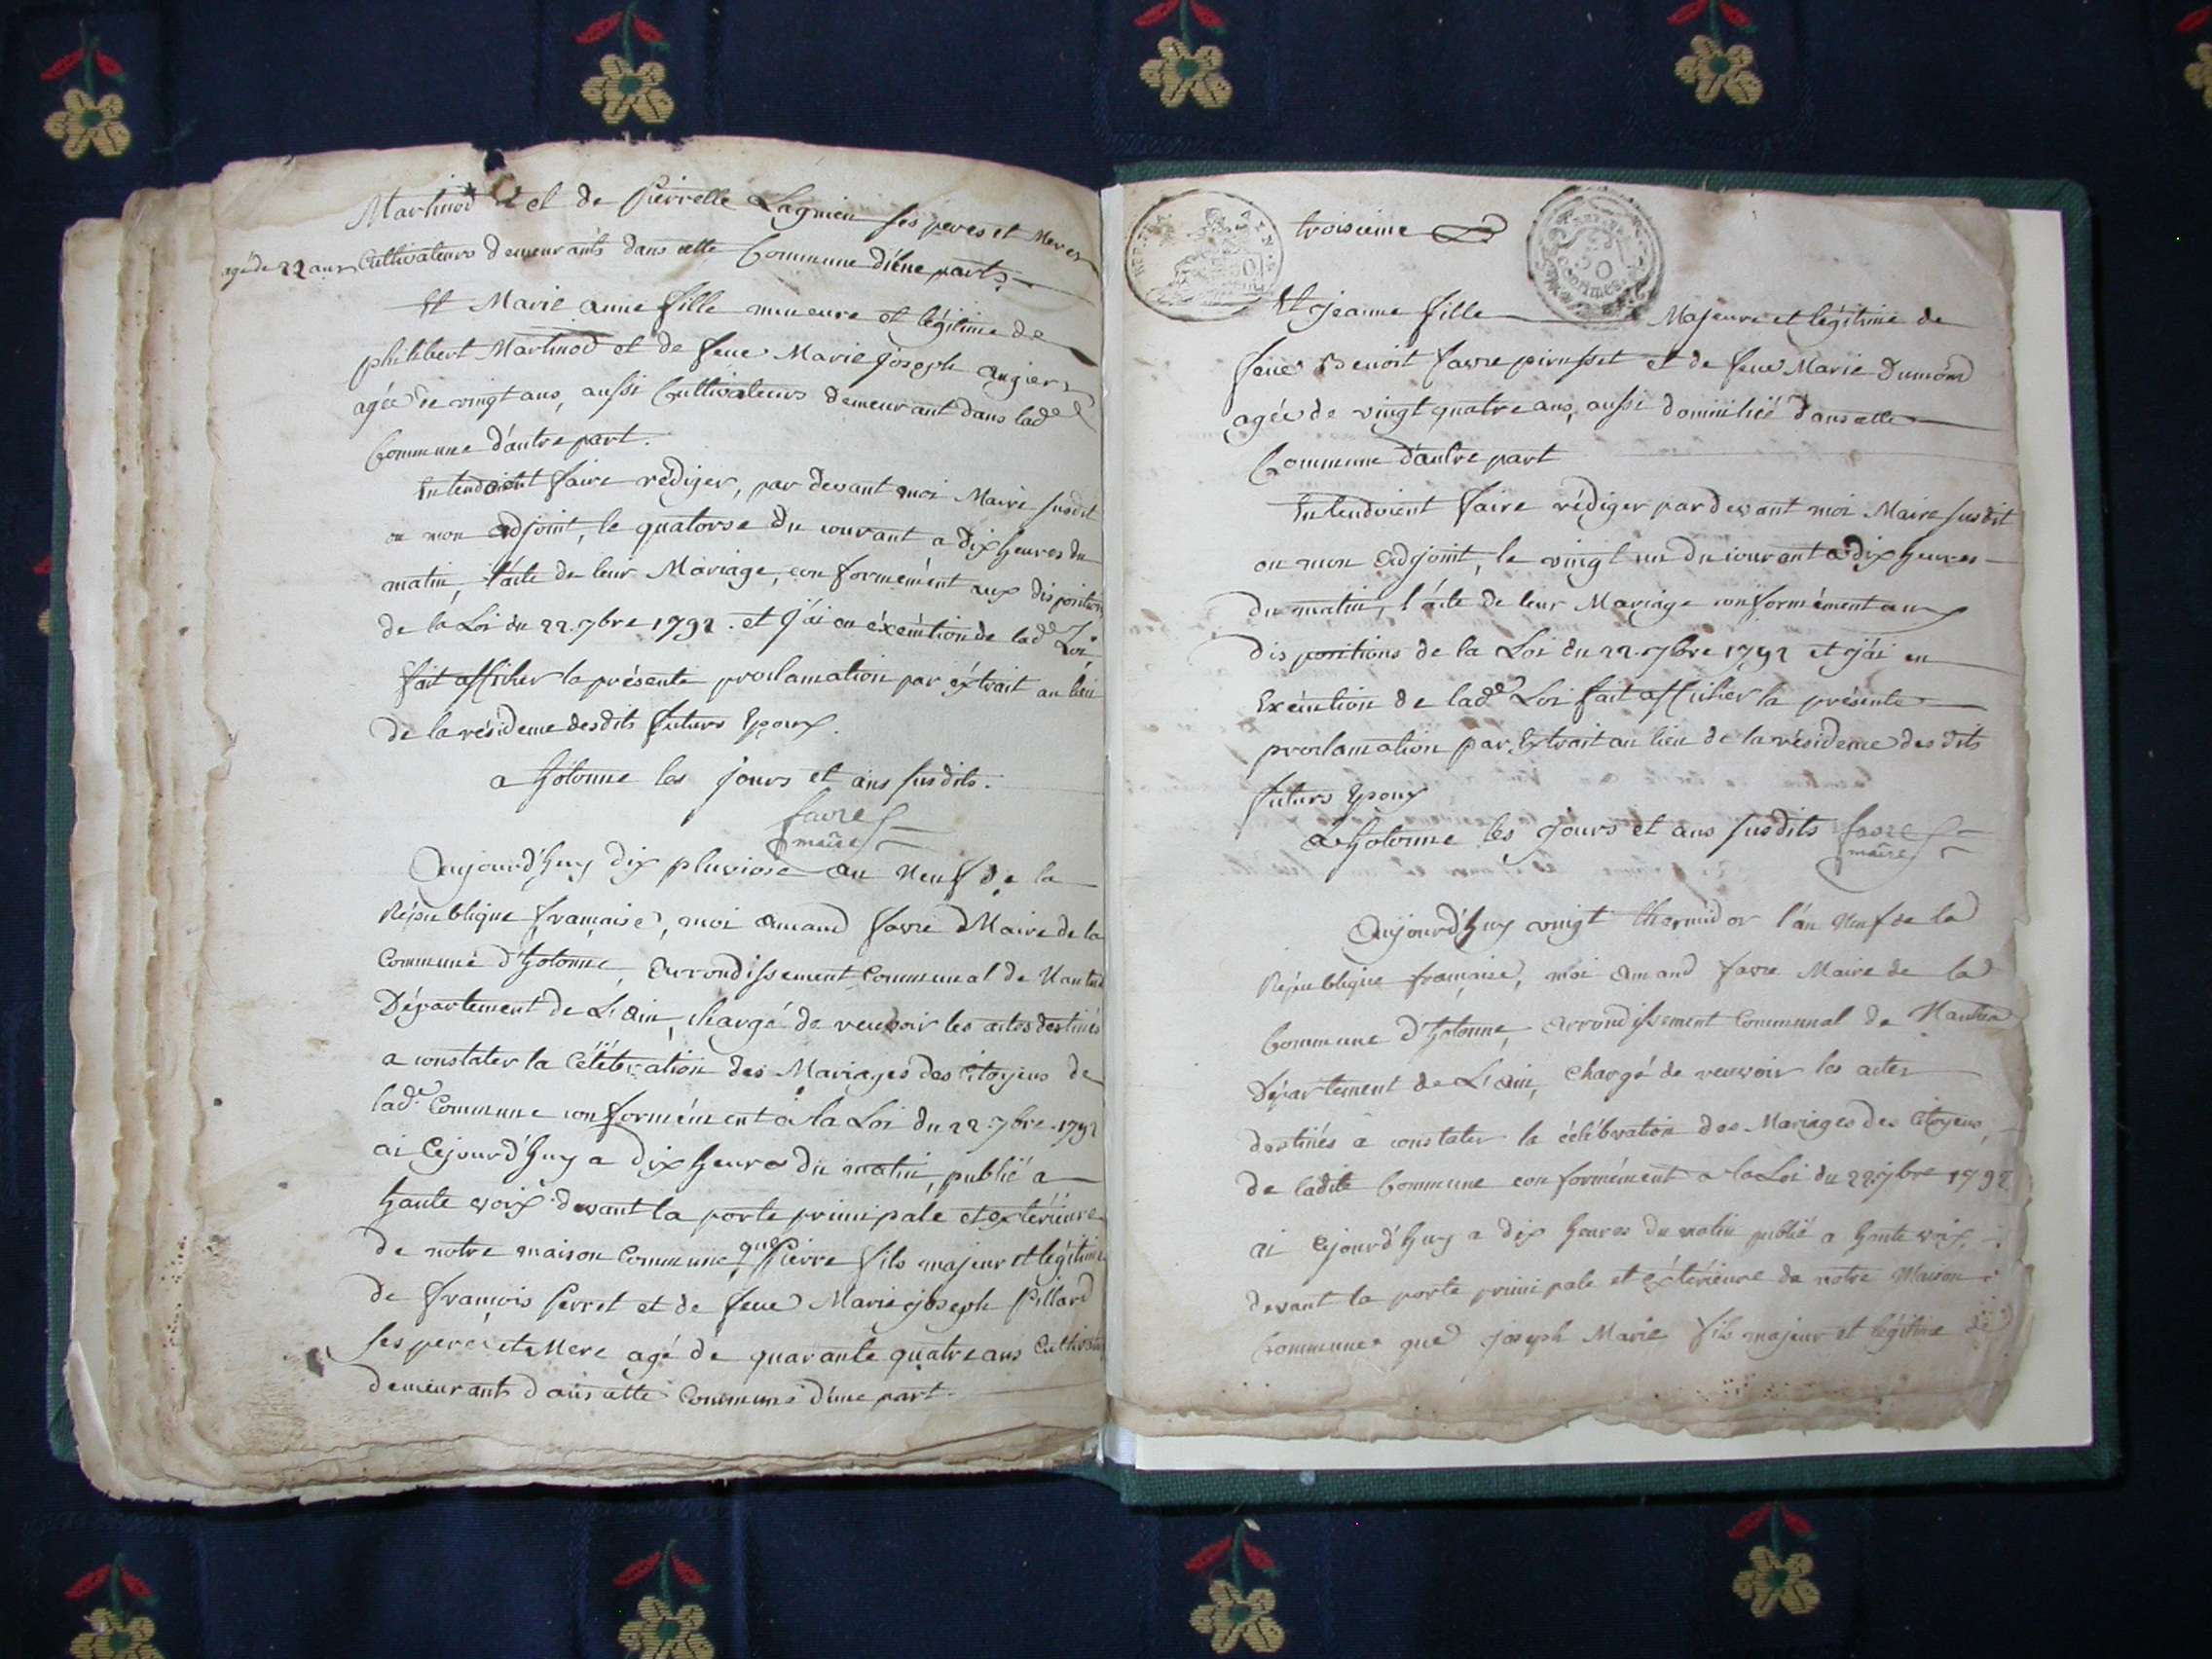 Martinod et de Pierrette Lagnieu ses peres et Meres
agé de 22 ans Cultivateurs demeurants dans cette Commune d'une part
Et Marie anne fille mineure et légitime de
philibert Martinod et de feue Marie Joseph Augier
agée de vingt ans, aussi Cultivateurs demeurant dans lad.e
Commune d'autre part.
Entendoient faire rédiger, par devant moi Maire susdit
ou mon adjoint, le quatorse du courant a dix heures du
matin, l'acte de leur Mariage, conformément aux dispositions
de la Loi du 22. 7bre 1792. et j'ai en éxécution de lad.e Loi
fait afficher la présente proclamation par éxtrait au lieu
de la résidence desdits futurs Epoux.
a hotonne les jours et ans susdits.
favre
maire
Aujourd'huy dix pluviose an Neuf de la
République française, moi amand favre Maire de la
Commune d'hotonne, arrondissement Communal de Nantua
Département de L'ain, chargé de recevoir les actes destinés
a constater la Célébration des Mariages des Citoyens de
lad.e Commune conformément à la Loi du 22. 7bre. 1792
ai Cejourd'huy a dix heures du matin, publié a
haute voix devant la porte principale et éxterieure
de notre maison Commune, que Pierre fils majeur et légitime
de françois Perret et de feue Marie joseph Pillard
ses pere et Mere agé de quarante quatre ans Cultivateurs
demeurants dans cette Commune d'une part.
troisieme
Et Jeanne fille Majeure et légitime de
feue Benoit favre pirusset et de feue Marie Dumond
agée de vingt quatre ans, aussi domicilié dans cette
Commune d'autre part
Entendoient faire rédiger par devant moi Maire susdit
ou mon adjoint, le vingt un du courant a dix heures
du matin, l'acte de leur Mariage conformément aux
dispositions de la Loi du 22. 7bre 1792 et j'ai en
Exécution de lad.e Loi fait afficher la présente
proclamation par Extrait au lieu de la résidence des dits
futurs Epoux
a hotonne les jours et ans susdits favre
maire
Aujourd'huy vingt thermidor l'an Neuf de la
République française, moi amand favre Maire de la
Commune d'hotonne, arrondissement Communal de Nantua
Département de L'ain, Chargé de recevoir les actes
destinés a constater la célébration des Mariages des Citoyens
de ladite Commune conformément a la Loi du 22. 7bre 1792
ai Cejourd'huy a dix heures du matin publié a haute voix,
devant la porte principale et éxtérieure de notre Maison
Commune que joseph Marie fils majeur et légitime de